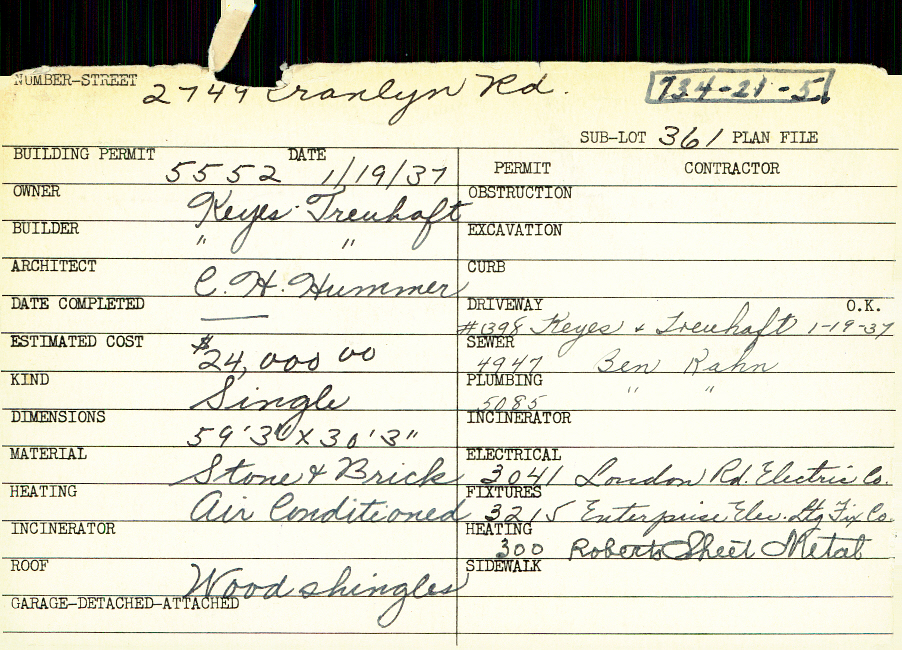 NUMBER-STREET 2749 Cranlyn Rd. 734-21-5
SUB-LOT 361 PLAN FILE
BUILDING PERMIT 5552 DATE 1/19/37
PERMIT CONTRACTOR
OWNER Keyes-Treuhaft
OBSTRUCTION
BUILDER " "
EXCAVATION
ARCHITECT C. H. Hummer
CURB
DATE COMPLETED —
DRIVEWAY O.K.
#1398 Keyes & Treuhaft 1-19-37
ESTIMATED COST $24,000 00
SEWER
4947 Ben Rahn
KIND Single
PLUMBING
5085 " "
DIMENSIONS 59'3" X 30'3"
INCINERATOR
MATERIAL Stone & Brick
ELECTRICAL
3041 London Rd. Electric Co.
HEATING Air Conditioned
FIXTURES
3215 Enterprise Elec. Ltg Fix Co.
INCINERATOR
HEATING
300 Roberts Sheet Metal
ROOF Wood shingles
SIDEWALK
GARAGE-DETACHED-ATTACHED